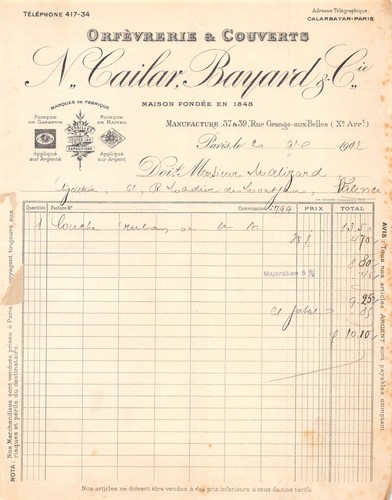 TÉLÉPHONE 417-34
Adresse Télégraphique:
CALARBAYAR-PARIS
ORFÈVRERIE & COUVERTS
N., Cailar, Bayard & Cie
MARQUES DE FABRIQUE
POINÇON DE GARANTIE
POINÇON DE MAITRE
TOUTES LES EXPOSITIONS
Appliqué sur Argenté
Appliqué sur Argent
MAISON FONDÉE EN 1848
MANUFACTURE 37 & 39, Rue Grange-aux-Belles (Xe Arrt)
Paris, le 20 1902
Doit Monsieur
61, R de Valence
Quantités
Facture No
Commission
1799
PRIX
TOTAL
1 Louche rubans
13.50
35 %
4 70
8 80
Majoration 5 %
45
9 25
85
10.10
NOTA: Nos Marchandises sont vendues prises à Paris et voyagent toujours aux risques et périls du destinataire.
AVIS: Tous nos articles ARGENT sont payables comptant.
Nos articles ne doivent être vendus à des prix inférieurs à ceux de nos tarifs